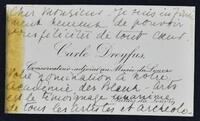 Cher Monsieur. Je suis infini
ment heureux de pouvoir
vous féliciter de tout cœur.
Carle Dreyfus,
Conservateur-adjoint au Musée du Louvre
votre nomination à notre
Académie des Beaux-Arts
est le témoignage unanime
tous les artistes et archéolo